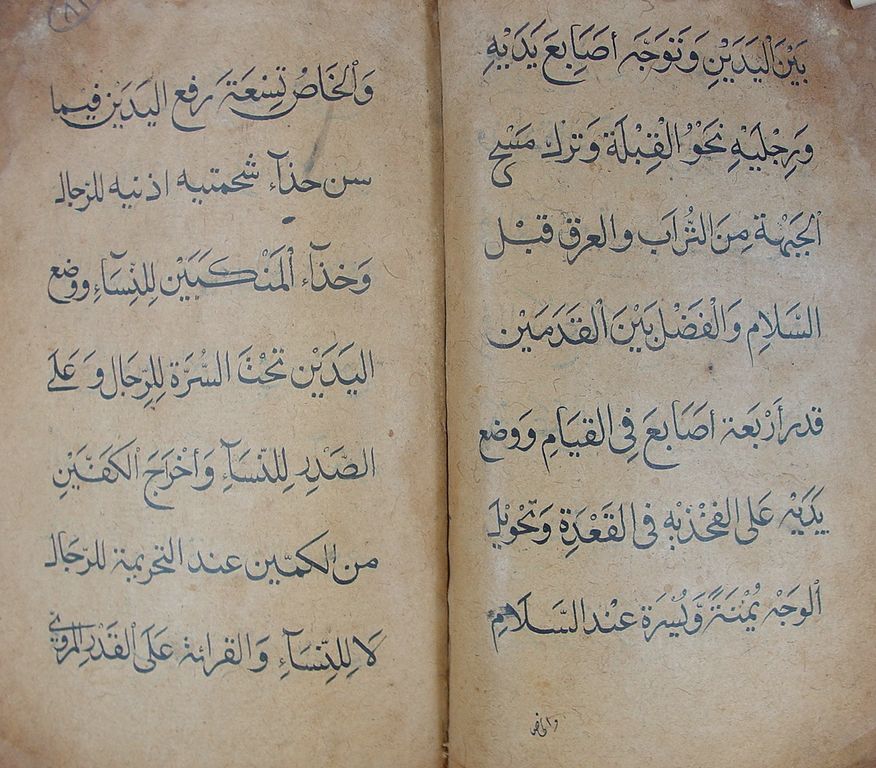 بَيْنَ الْيَدَيْنِ وَتَوَجُّه أَصَابِعَ يَدَيْهِ
وَرِجْلَيْهِ نَحْوُ الْقِبْلَة وَتَرْكِ مَسْحِ
الْجَبْهَةِ مِنَ التُّرَابِ والعرق قَبْل
السَّلَامِ وَالْفَضْل بَيْنَ القَدَمَيْن
قدر أَرْبَعَة أَصَابِعَ فِي القيَامِ وَوَضع
يَدَيْهِ عَلى الفخْذيْه في القَعْدَةِ وَتحْوِيْل
الوَجْه يُمْنَةً وَيُسْرَة عِنْد السَّلَامِ
والخاص
٨١
وَالْخَاصُّ تِسْعَةَ رَفع اليَدَيْن فيما
سن حذآء شحمتيه اذنيه للرجال
وَحْذآءِ الْمَنْكَبَيْن لِلنِّسَآءِ ووَضع
اليَدَيْن تَحْتَ السُّرَّة لِلرِّجَال وَعَلَى
الصَّدْرِ لِلنِّسَآءِ وَأَخْرَاجَ الْكَفَّيْنِ
من الكمّين عند التحريمة للرِّجَال
لَا لِلنِّسَآءِ وَالقرائة عَلَى الْقَدْرِ المروىّ